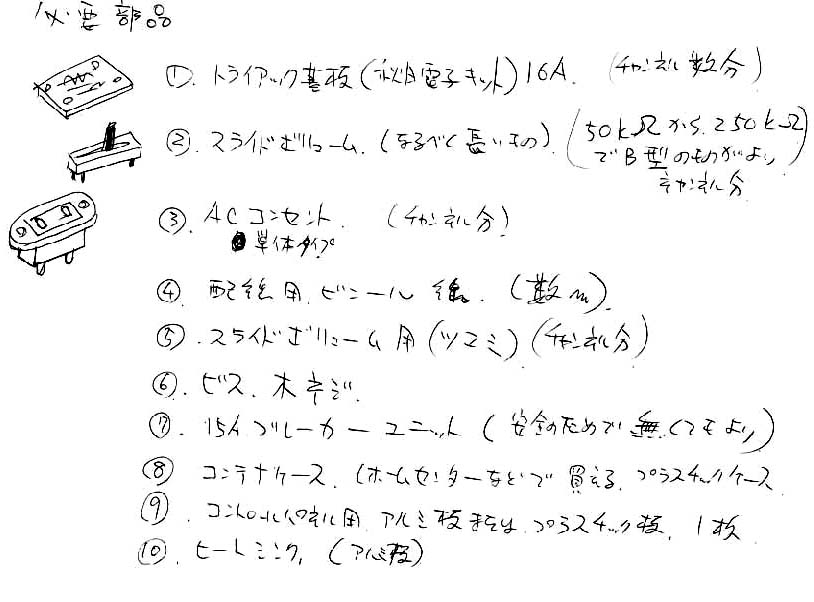 必要部品
①. トライアック基板(秋月電子キット)16A. (チャンネル数分)
②. スライドボリューム. (なるべく長いもの). (50kΩから250kΩ
でB型のものがよい)
チャンネル分
③. ACコンセント. (チャンネル分)
単体タイプ
④. 配線用. ビニール線. (数m).
⑤. スライドボリューム用(ツマミ)(チャンネル分)
⑥. ビス. 木ネジ.
⑦. 15Aブレーカーユニット(安全のためで無くてもよい)
⑧. コンテナケース. (ホームセンターなどで買える. プラスチックケース
⑨. コントロールパネル用. アルミ板または. プラスチック板. 1枚
⑩. ヒートシンク. (アルミ板)